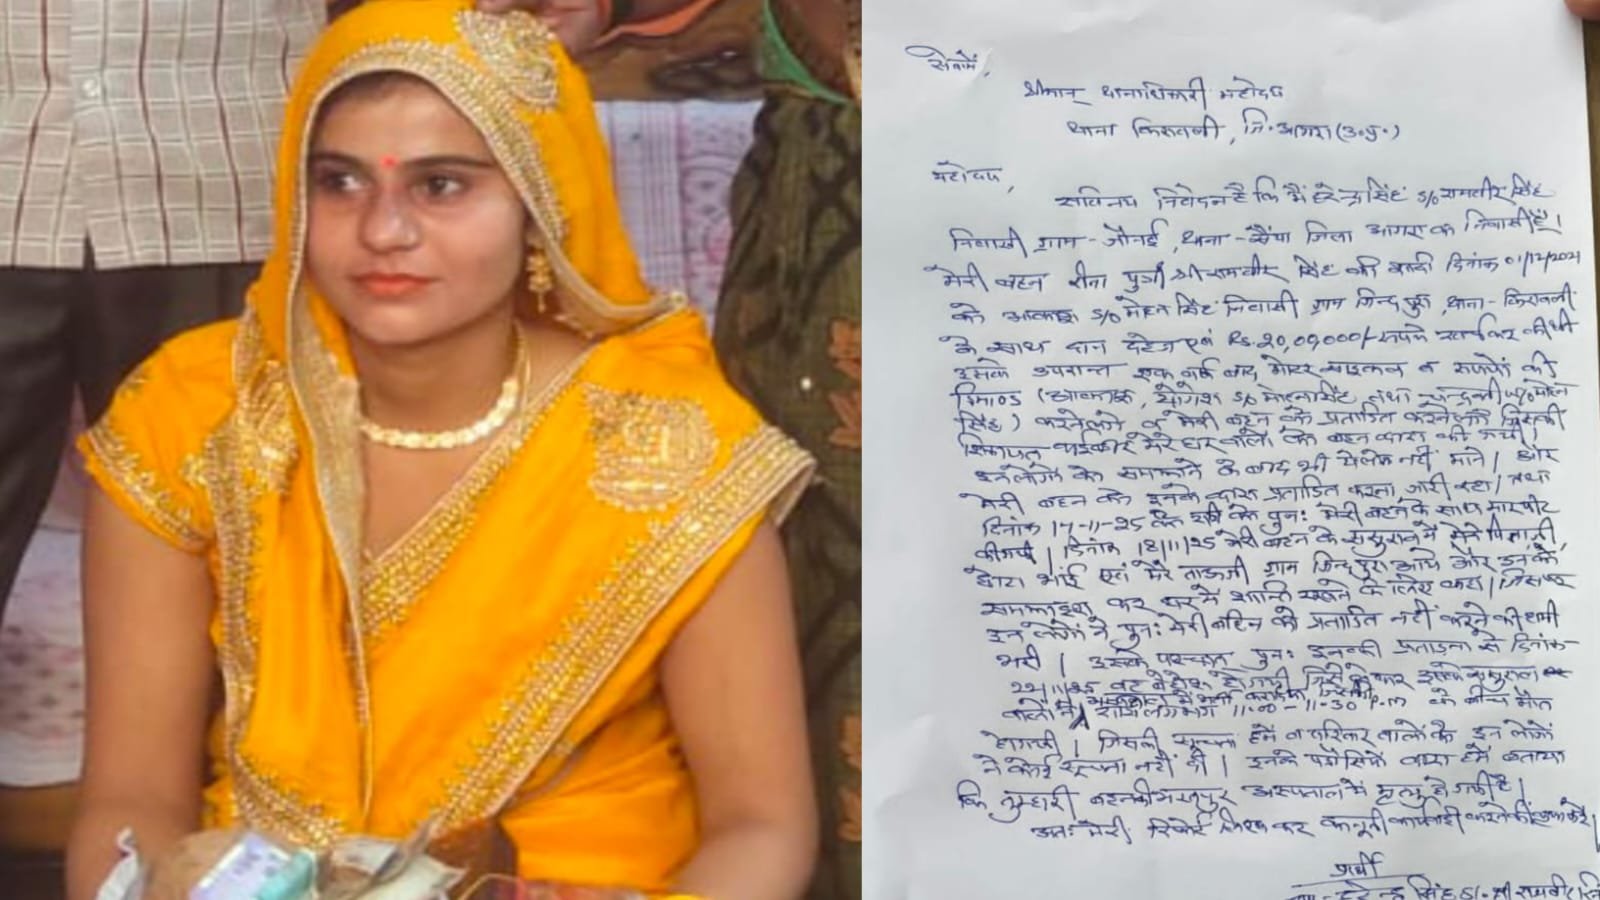 सेवामें,
श्रीमान् थानाधिकारी महोदय
थाना किरावली, जि॰ आगरा (उ॰प्र॰)
महोदय,
सविनय निवेदन है कि मैं हरेन्द्र सिंह S/o रामवीर सिंह
निवासी ग्राम - जौनई, थाना - सैंया जिला आगरा का निवासी हूँ।
मेरी बहन रीना पुत्री श्री रामवीर सिंह की शादी दिनांक 01/12/2021
को आकाश S/o मोहन सिंह निवासी ग्राम जिन्दपुरा, थाना - किरावली
के साथ दान दहेज एवं Rs. 20,00,000/- रूपये खर्च कर की थी
उसके उपरान्त एक वर्ष बाद, मोटर साइकल व रूपयों की
डिमाण्ड (आकाश, योगेश S/o मोहन सिंह तथा W/o मोहन
सिंह) करने लगे व मेरी बहन को प्रताडित करने लगे जिसकी
शिकायत कई बार मेरे घर वालों को बहन द्वारा की गयी।
इन लोगों को समझाने के बाद भी ये लोग नहीं माने। और
मेरी बहन को इनके द्वारा प्रताडित करना जारी रहा। तथा
दिनांक 17-11-25 को रात्रि को पुनः मेरी बहन के साथ मारपीट
की गयी। दिनांक 18/11/25 मेरी बहन के ससुराल में मेरे पिताजी,
छोटा भाई एवं मेरे ताऊजी ग्राम जिन्दपुरा आये और इनको
समझाइश कर घर में शान्ति रखने के लिए कहा। जिस पर
इन लोगों ने पुनः मेरी बहिन को प्रताडित नहीं करने की हामी
भरी। उसके पश्चात पुनः इनकी प्रताडना से दिनांक-
22/11/25 वह बेहोश हो गयी जिसे लेकर इसके ससुराल
वालों ने अस्पताल में भर्ती कराया जिसकी रात्रि लगभग 11:00 - 11:30 P.m के बीच मौत
हो गयी। जिसकी सूचना हमें व परिवार वालों को इन लोगों
ने कोई सूचना नहीं दी। इनके पडौसियों द्वारा हमें बताया
कि तुम्हारी बहन की भरतपुर अस्पताल में मृत्यु हो गयी है।
अतः मेरी रिपोर्ट लिखकर कानूनी कार्यवाही करने की कृपा करें।
प्रार्थी
हरेन्द्र सिंह S/o श्री रामवीर सिंह